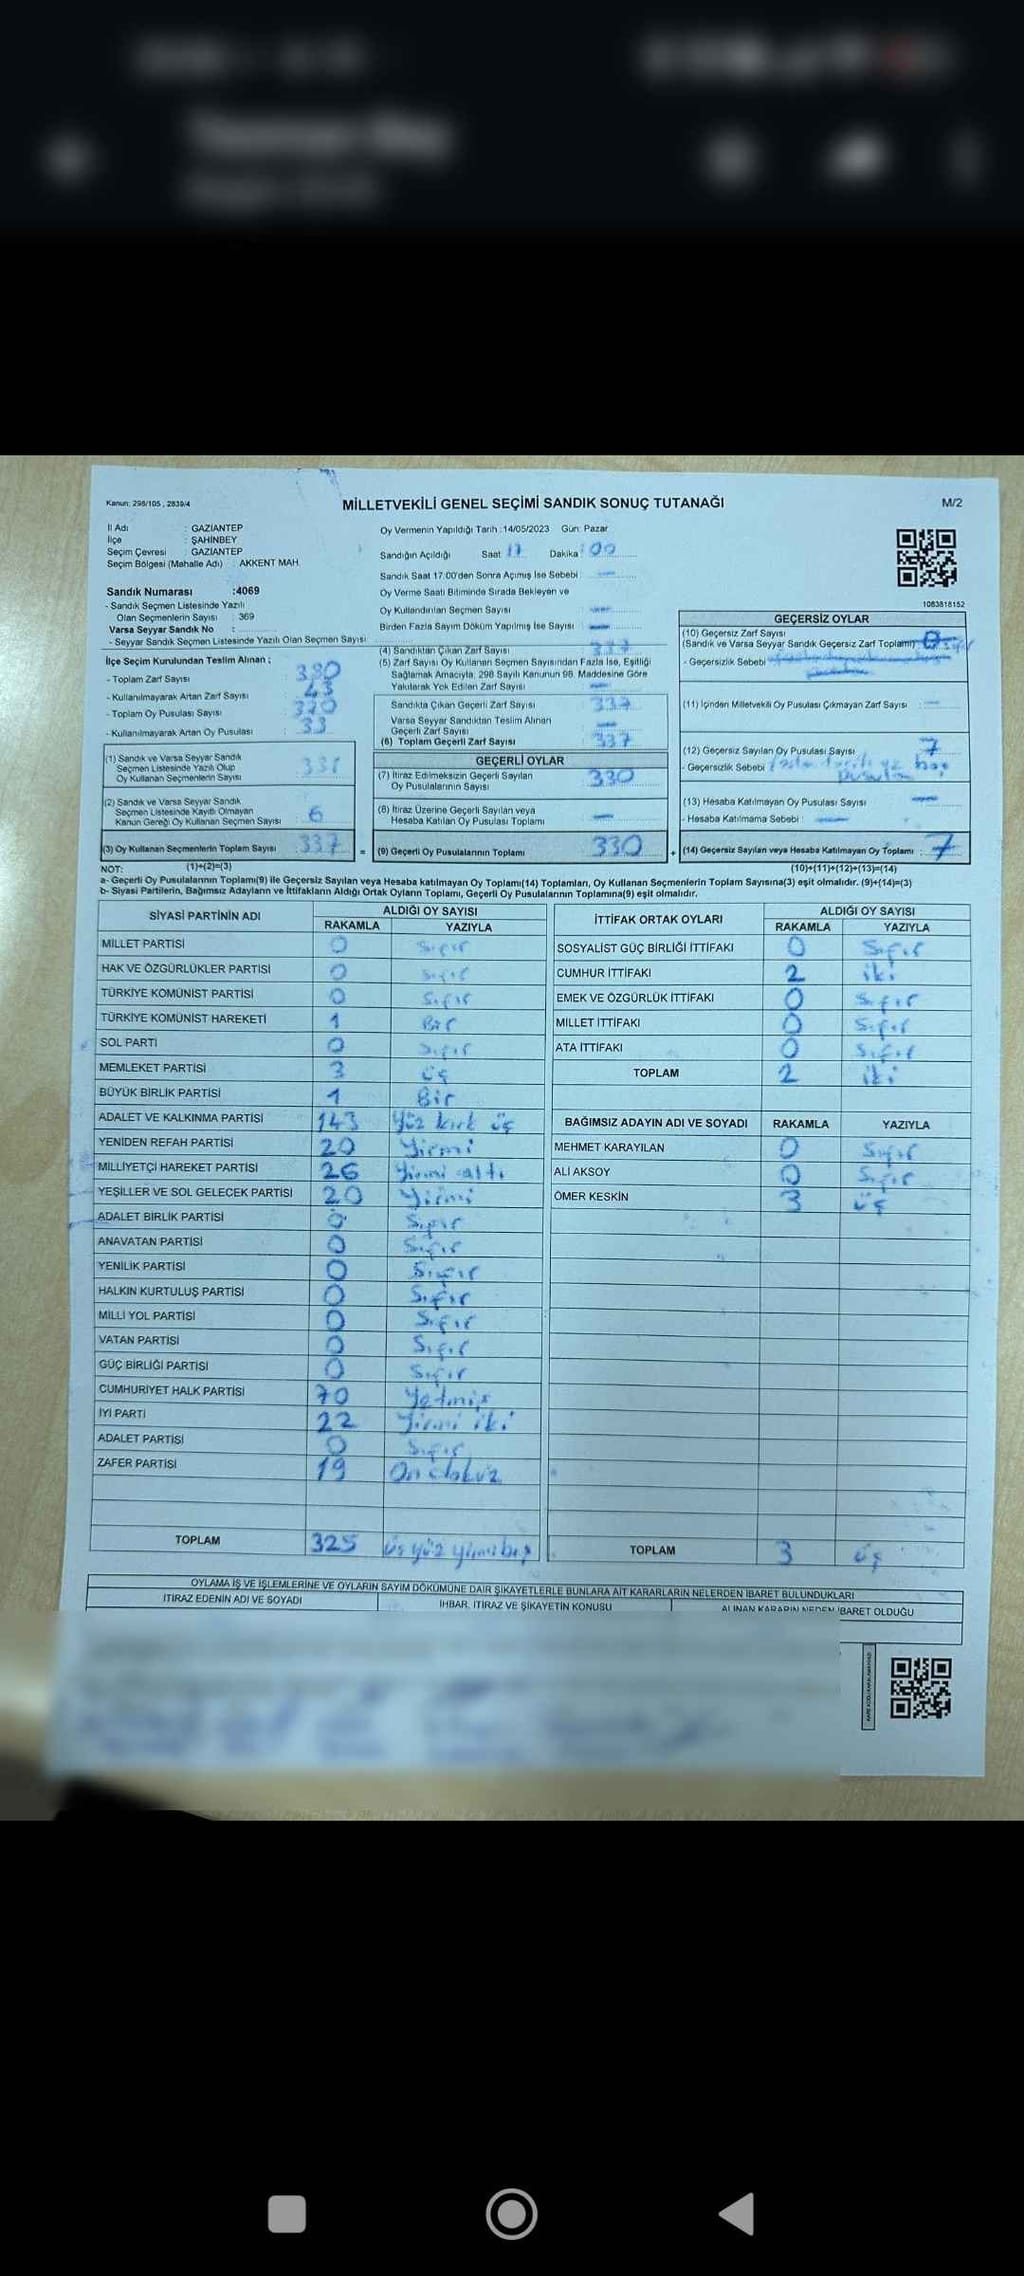 Kanun: 298/105 , 2839/4
MİLLETVEKİLİ GENEL SEÇİMİ SANDIK SONUÇ TUTANAĞI
M/2
İl Adı : GAZİANTEP
İlçe : ŞAHİNBEY
Seçim Çevresi : GAZİANTEP
Seçim Bölgesi (Mahalle Adı) : AKKENT MAH.
Sandık Numarası :4069
- Sandık Seçmen Listesinde Yazılı
Olan Seçmenlerin Sayısı : 369
Varsa Seyyar Sandık No :
- Seyyar Sandık Seçmen Listesinde Yazılı Olan Seçmen Sayısı
İlçe Seçim Kurulundan Teslim Alınan ;
- Toplam Zarf Sayısı 380
- Kullanılmayarak Artan Zarf Sayısı 43
- Toplam Oy Pusulası Sayısı
- Kullanılmayarak Artan Oy Pusulası 33
(1) Sandık ve Varsa Seyyar Sandık
Seçmen Listesinde Yazılı Olup
Oy Kullanan Seçmenlerin Sayısı 331
(2) Sandık ve Varsa Seyyar Sandık
Seçmen Listesinde Kayıtlı Olmayan
Kanun Gereği Oy Kullanan Seçmen Sayısı 6
(3) Oy Kullanan Seçmenlerin Toplam Sayısı : 337 =
Oy Vermenin Yapıldığı Tarih :14/05/2023 Gün: Pazar
Sandığın Açıldığı Saat 17 Dakika : 00
Sandık Saat 17:00'den Sonra Açımış İse Sebebi : —
Oy Verme Saati Bitiminde Sırada Bekleyen ve
Oy Kullandırılan Seçmen Sayısı : —
Birden Fazla Sayım Döküm Yapılmış İse Sayısı : —
(4) Sandıktan Çıkan Zarf Sayısı 337
(5) Zarf Sayısı Oy Kullanan Seçmen Sayısından Fazla İse, Eşitliği
Sağlamak Amacıyla; 298 Sayılı Kanunun 98. Maddesine Göre
Yakılarak Yok Edilen Zarf Sayısı —
Sandıkta Çıkan Geçerli Zarf Sayısı 337
Varsa Seyyar Sandıktan Teslim Alınan
Geçerli Zarf Sayısı —
(6) Toplam Geçerli Zarf Sayısı 337
GEÇERLİ OYLAR
(7) İtiraz Edilmeksizin Geçerli Sayılan
Oy Pusulalarının Sayısı 330
(8) İtiraz Üzerine Geçerli Sayılan veya
Hesaba Katılan Oy Pusulası Toplamı —
(9) Geçerli Oy Pusulalarının Toplamı 330 +
1083818152
GEÇERSİZ OYLAR
(10) Geçersiz Zarf Sayısı
(Sandık ve Varsa Seyyar Sandık Geçersiz Zarf Toplamı) : 0
- Geçersizlik Sebebi
(11) İçinden Milletvekili Oy Pusulası Çıkmayan Zarf Sayısı : —
(12) Geçersiz Sayılan Oy Pusulası Sayısı : 7
- Geçersizlik Sebebi : ve boş
pusula
(13) Hesaba Katılmayan Oy Pusulası Sayısı : —
- Hesaba Katılmama Sebebi : —
(14) Geçersiz Sayılan veya Hesaba Katılmayan Oy Toplamı : 7
NOT: (1)+(2)=(3)
(10)+(11)+(12)+(13)=(14)
a- Geçerli Oy Pusulalarının Toplamı(9) ile Geçersiz Sayılan veya Hesaba katılmayan Oy Toplamı(14) Toplamları, Oy Kullanan Seçmenlerin Toplam Sayısına(3) eşit olmalıdır. (9)+(14)=(3)
b- Siyasi Partilerin, Bağımsız Adayların ve İttifakların Aldığı Ortak Oyların Toplamı, Geçerli Oy Pusulalarının Toplamına(9) eşit olmalıdır.
SİYASİ PARTİNİN ADI ALDIĞI OY SAYISI
RAKAMLA YAZIYLA
MİLLET PARTİSİ 0 Sıfır
HAK VE ÖZGÜRLÜKLER PARTİSİ 0 Sıfır
TÜRKİYE KOMÜNİST PARTİSİ 0 Sıfır
TÜRKİYE KOMÜNİST HAREKETİ 1 Bir
SOL PARTİ 0 Sıfır
MEMLEKET PARTİSİ 3 üç
BÜYÜK BİRLİK PARTİSİ 1 Bir
ADALET VE KALKINMA PARTİSİ 143 Yüz kırk üç
YENİDEN REFAH PARTİSİ 20 Yirmi
MİLLİYETÇİ HAREKET PARTİSİ 26 Yirmi altı
YEŞİLLER VE SOL GELECEK PARTİSİ 20 Yirmi
ADALET BİRLİK PARTİSİ 0 Sıfır
ANAVATAN PARTİSİ 0 Sıfır
YENİLİK PARTİSİ 0 Sıfır
HALKIN KURTULUŞ PARTİSİ 0 Sıfır
MİLLİ YOL PARTİSİ 0 Sıfır
VATAN PARTİSİ 0 Sıfır
GÜÇ BİRLİĞİ PARTİSİ 0 Sıfır
CUMHURİYET HALK PARTİSİ 70 Yetmiş
İYİ PARTİ 22 Yirmi iki
ADALET PARTİSİ 0 Sıfır
ZAFER PARTİSİ 19 On dokuz
TOPLAM 325 üç yüz yirmi beş
İTTİFAK ORTAK OYLARI ALDIĞI OY SAYISI
RAKAMLA YAZIYLA
SOSYALİST GÜÇ BİRLİĞİ İTTİFAKI 0 Sıfır
CUMHUR İTTİFAKI 2 iki
EMEK VE ÖZGÜRLÜK İTTİFAKI 0 Sıfır
MİLLET İTTİFAKI 0 Sıfır
ATA İTTİFAKI 0 Sıfır
TOPLAM 2 iki
BAĞIMSIZ ADAYIN ADI VE SOYADI RAKAMLA YAZIYLA
MEHMET KARAYILAN 0 Sıfır
ALİ AKSOY 0 Sıfır
ÖMER KESKİN 3 üç
TOPLAM 3 üç
OYLAMA İŞ VE İŞLEMLERİNE VE OYLARIN SAYIM DÖKÜMÜNE DAİR ŞİKAYETLERLE BUNLARA AİT KARARLARIN NELERDEN İBARET BULUNDUKLARI
İTİRAZ EDENİN ADI VE SOYADI
İHBAR, İTİRAZ VE ŞİKAYETİN KONUSU
ALINAN KARARIN NEDEN İBARET OLDUĞU